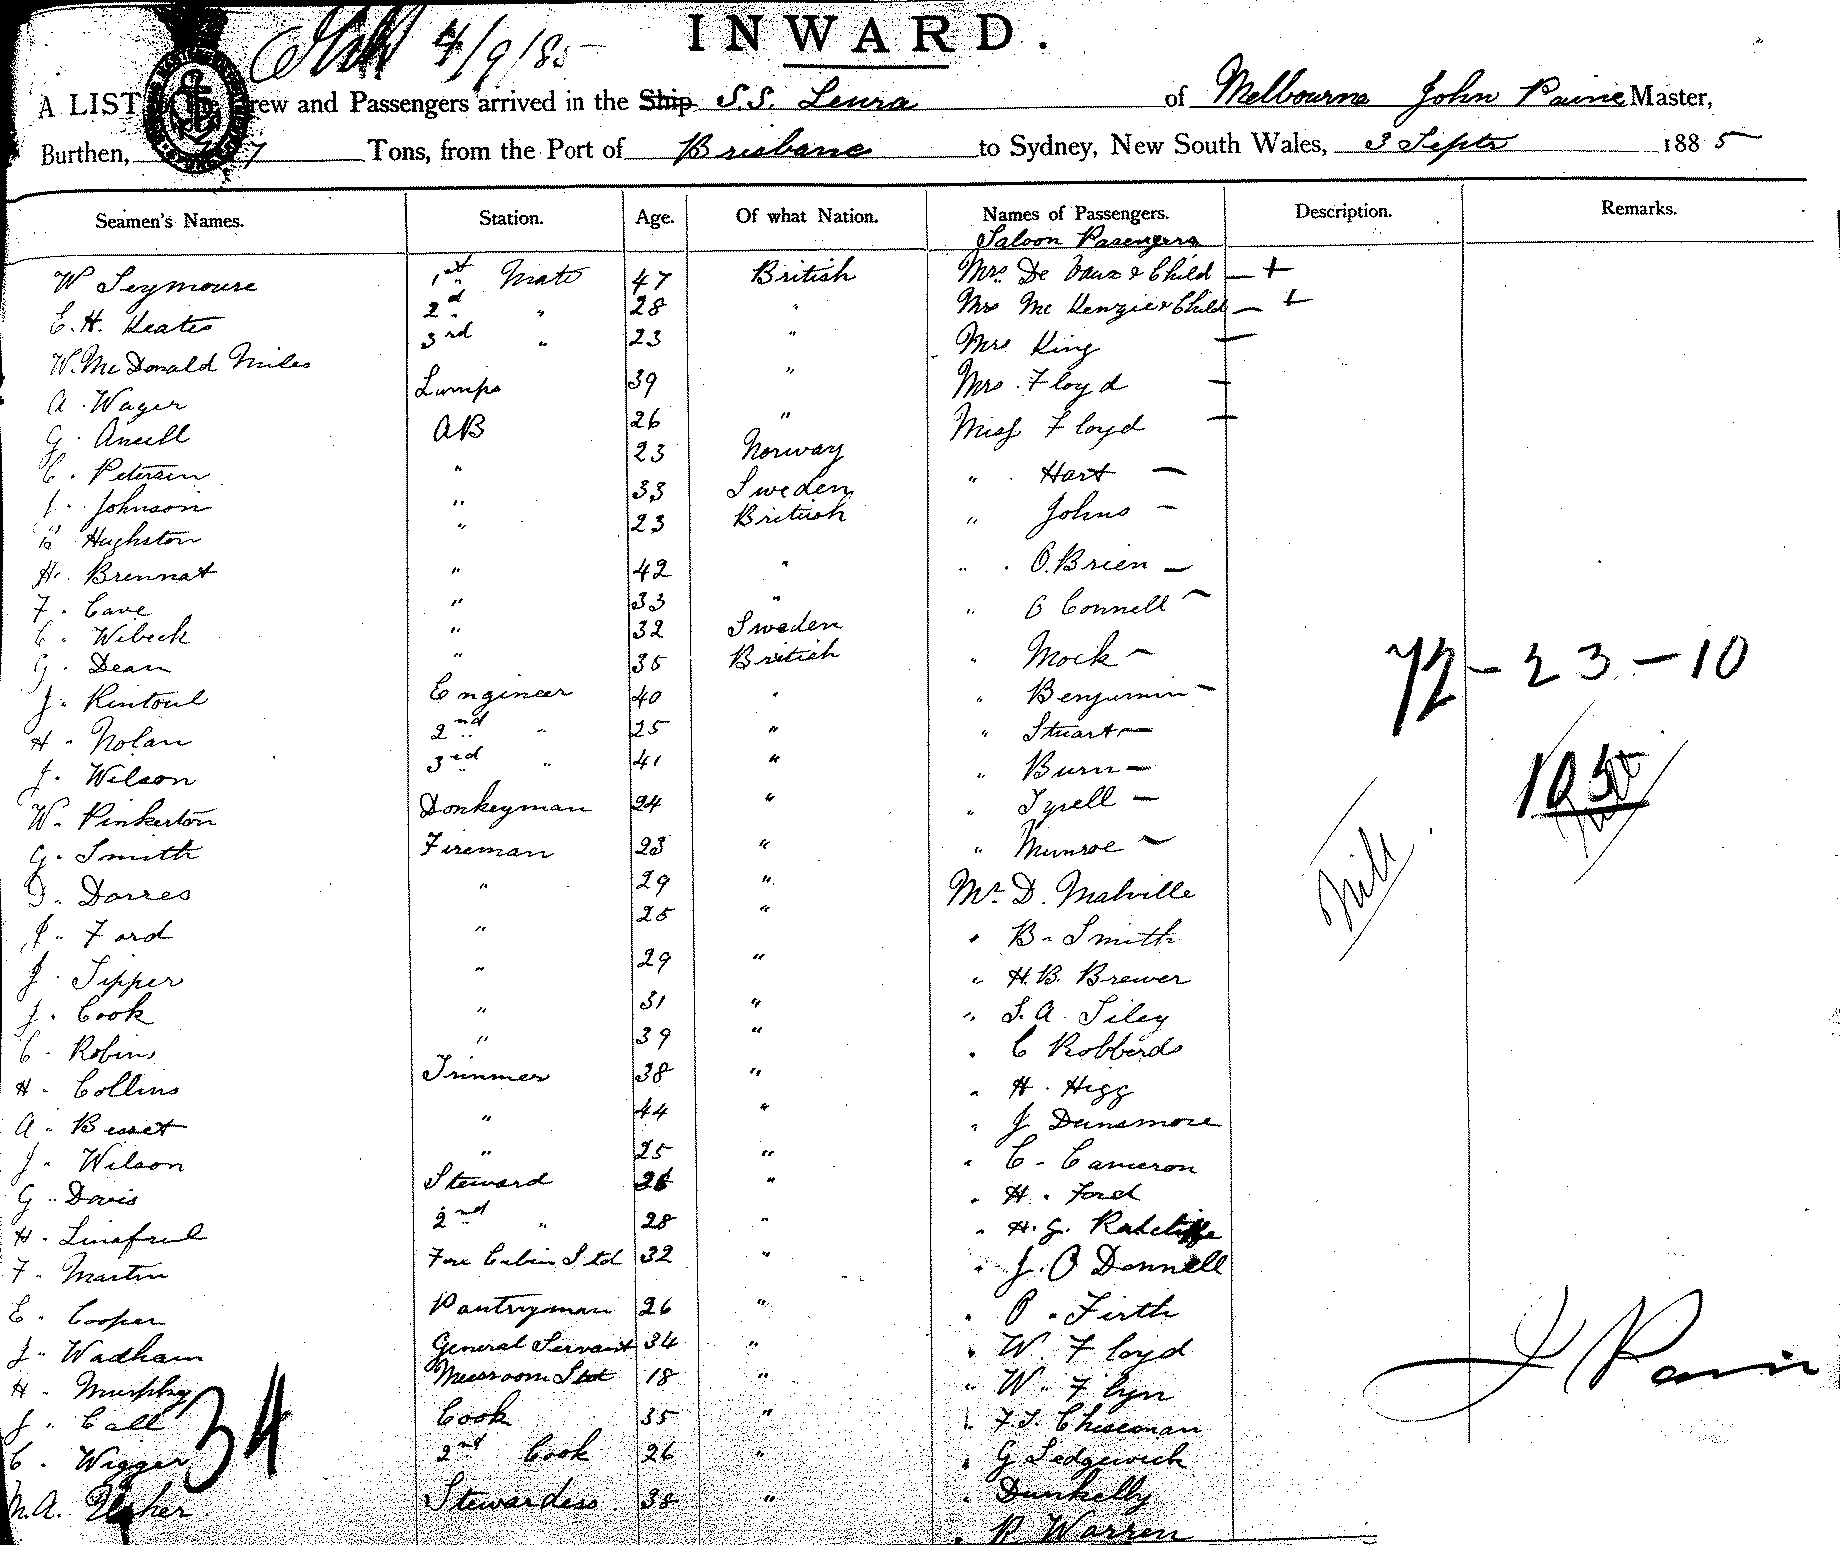 4/9/85
INWARD.
A LIST rew and Passengers arrived in the Ship S.S. Leura of Melbourne John Paine Master,
Burthen, 7 Tons, from the Port of Brisbane to Sydney, New South Wales, 3 Septr 1885
Seamen's Names. Station. Age. Of what Nation. Names of Passengers. Description. Remarks.
Saloon Pasengers
W Seymoure 1st Mate 47 British Mrs De Vaux & Child — +
E. H. Keates 2d " 28 " Mrs Mc Kenzie & Child — +
W. Mc Donald Miles 3rd " 23 " Mrs King —
A. Wager Lamps 39 " Mrs. Floyd —
G. Ansell AB 26 " Miss Floyd —
C. Petersen " 23 Norway " Hart —
J. Johnson " 33 Sweden " Johns —
Hughston " 23 British " O.Brien —
H. Brennat " 42 " " O Connell —
F. Cave " 33 " " Mock —
C. Wibeck " 32 Sweden " Benjumin —
G. Dean " 35 British " Stuart —
J. Rintoul Engineer 40 " " Burn —
H. Nolan 2nd " 25 " " Tyrell —
J. Wilson 3rd " 41 " " Munroe —
W. Pinkerton Donkeyman 24 " Mr. D. Malville
G. Smith Fireman 23 " " B. Smith
D. Dorres " 29 " " H.B. Brewer
J. Ford " 25 " " S. A. Tiley
J. Tipper " 29 " " C Robberds
J. Cook " 31 " " H. Higg
C. Robins " 39 " " J Dunsmore
H. Collins Trimmer 38 " " C. Cameron
A. Besset " 44 " " H. Ford
J. Wilson " 25 " " H. G. Ratcliffe
G. Davis Steward 26 " " J. O Donnell
H. 2nd " 28 " " P. Firth
F. Martin Fore Cabin Std 32 " " W. Floyd
E. Cooper Pantryman 26 " " W. Flyn
J. Wadham General Servant 34 " " F.T. Chiseman
H. Murphy Messroom Std 18 " " G Sedgewick
J. Call Cook 35 " " Dunkelly
C. Wigger 2nd Cook 26 " " R Warren
M.A. Usher Stewardess 38 "
34
72 - 23 - 10
105
Nil.
J Paine